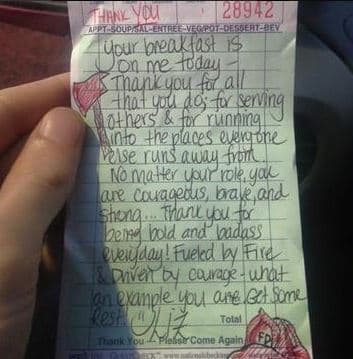 THANK YOU 28942
APPT-SOUP/SAL-ENTREE-VEG/POT-DESSERT-BEV
your breakfast is
on me today -
Thank you for all
that you do; for serving
others & for running
into the places everyone
else runs away from.
No matter your role, you
are courageous, brave, and
strong... Thank you for
being bold and badass
everyday! Fueled by Fire
& Driven by courage - what
an example you are. Get some
Rest! Liz
Total
Thank You - Please Come Again
FD